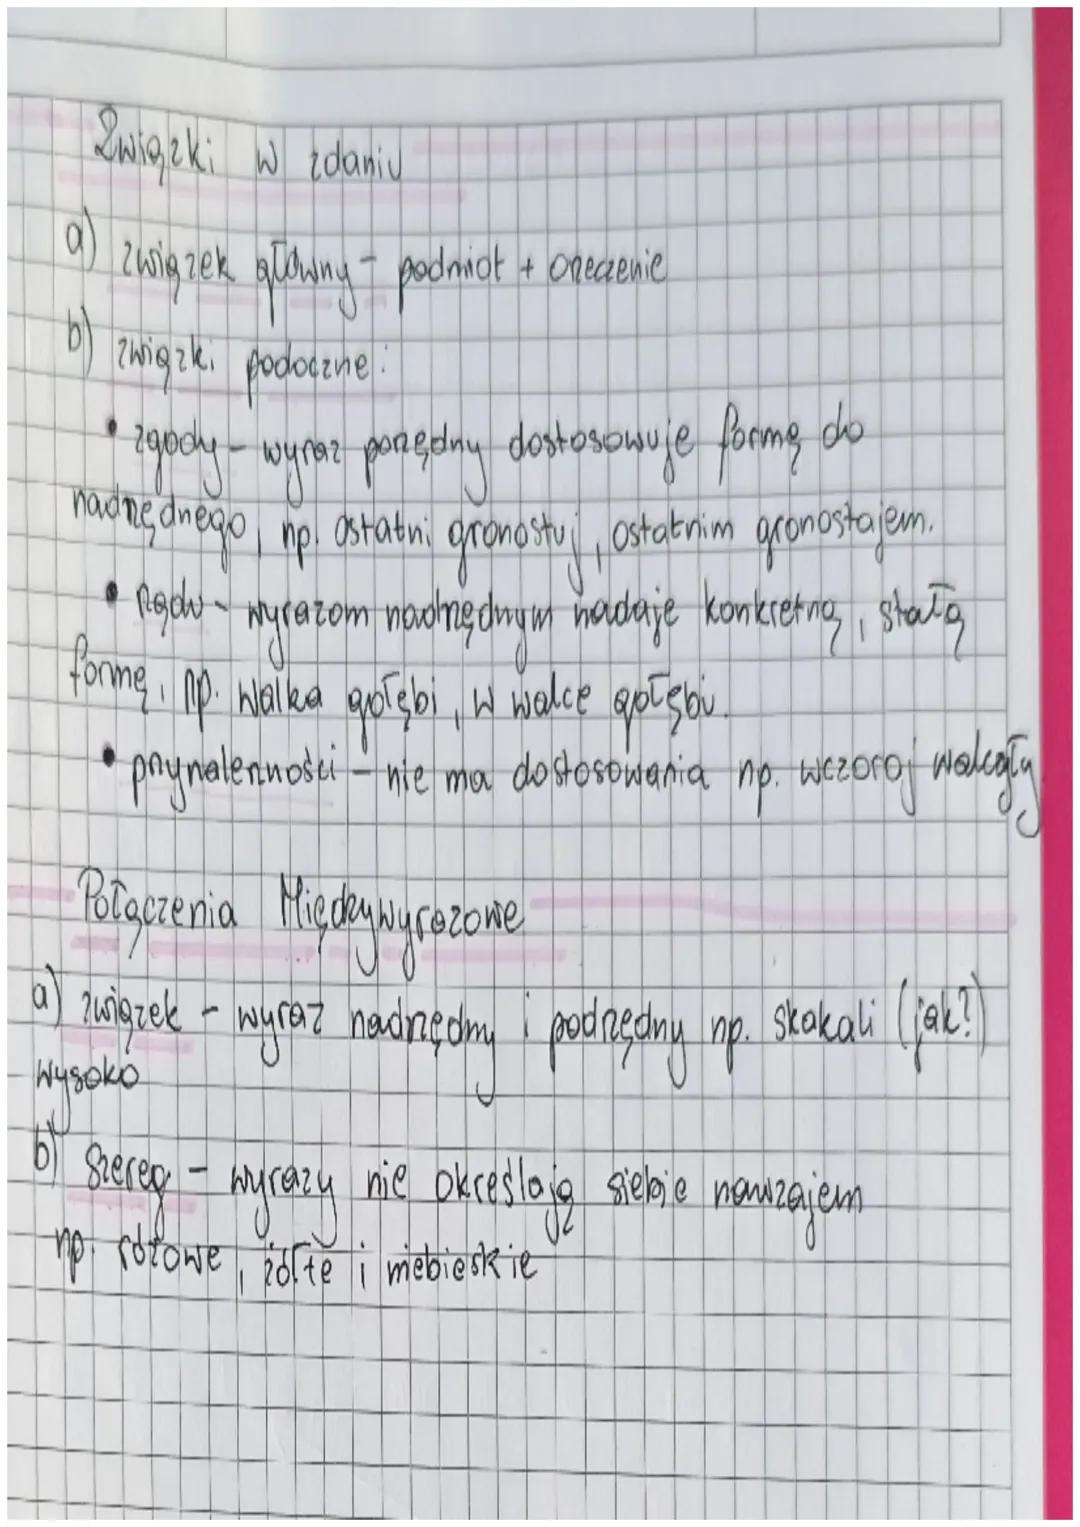 Związki w zdaniu
a) związek główny - podmiot + orzeczenie
b) związki poboczne:
• zgody - wyraz porzędny dostosowuje formę do
nadrzędnego, np. ostatni gronostaj, ostatnim gronostajem.
• rządu - wyrazom nadrzędnym nadaje konkretną, stałą
formę, np. walka gołębi, w walce gołębi.
• przynależności - nie ma dostosowania np. wczoraj walczyły
Połączenia Międzywyrazowe
a) związek - wyraz nadrzędny i podrzędny np. skakali (jak?)
wysoko
b) szereg - wyrazy nie określają siebie nawzajem
np. różowe, żółte i niebieskie